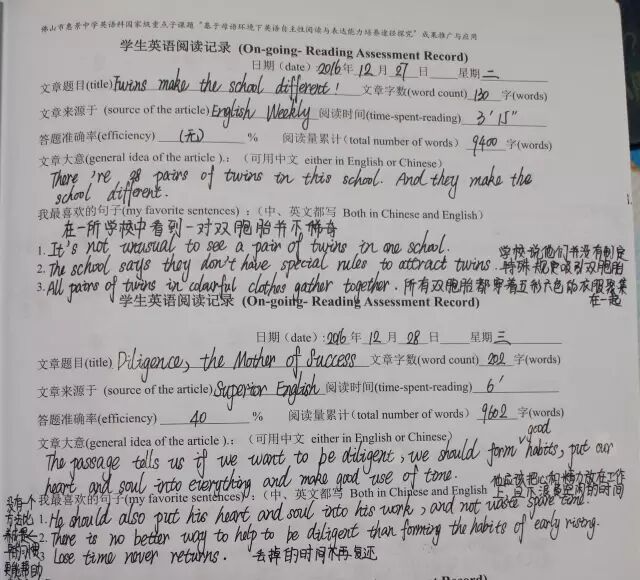 佛山市惠景中学英语科国家级重点子课题“基于母语环境下英语自主性阅读与表达能力培养途径探究”成果推广与应用
学生英语阅读记录 (On-going- Reading Assessment Record)
日期（date）:2016年 12 月 27 日 星期 二
文章题目(title) Twins make the school different! 文章字数(word count) 130 字(words)
文章来源于 (source of the article) English Weekly 阅读时间(time-spent-reading) 3'15"
答题准确率(efficiency) (无) % 阅读量累计(total number of words) 9400 字(words)
文章大意(general idea of the article ).：（可用中文 either in English or Chinese）
There 're 28 pairs of twins in this school. And they make the
school different.
我最喜欢的句子(my favorite sentences)：（中、英文都写 Both in Chinese and English）
在一所学校中看到一对双胞胎书不稀奇
1. It's not unusual to see a pair of twins in one school. 学校说他们书没有制定
2. The school says they don't have special rules to attract twins. 特殊规定吸引双胞胎
3. All pairs of twins in colourful clothes gather together. 所有双胞胎都穿着五彩六色的衣服聚集
在一起
学生英语阅读记录 (On-going- Reading Assessment Record)
日期（date）:2016 年 12 月 28 日 星期 三
文章题目(title) Diligence, the Mother of Success 文章字数(word count) 202 字(words)
文章来源于 (source of the article) Superior English 阅读时间(time-spent-reading) 6'
答题准确率(efficiency) 40 % 阅读量累计(total number of words) 9602 字(words)
文章大意(general idea of the article ).：（可用中文 either in English or Chinese）
good
The passage tells us if we want to be diligent, we should form habits, put our
heart and soul into everything and make good use of tome.
他应该把心和精力放在工作
我最喜欢的句子(my favorite sentences)：（中、英文都写 Both in Chinese and English
上,且不浪费空闲的时间
1. He should also put his heart and soul into his work, and not waste spare time.
2. There is no better way to help to be diligent than forming the habits of early rising.
3. Lose time never returns. 去掉的时间不再复还
没有一个
方法比